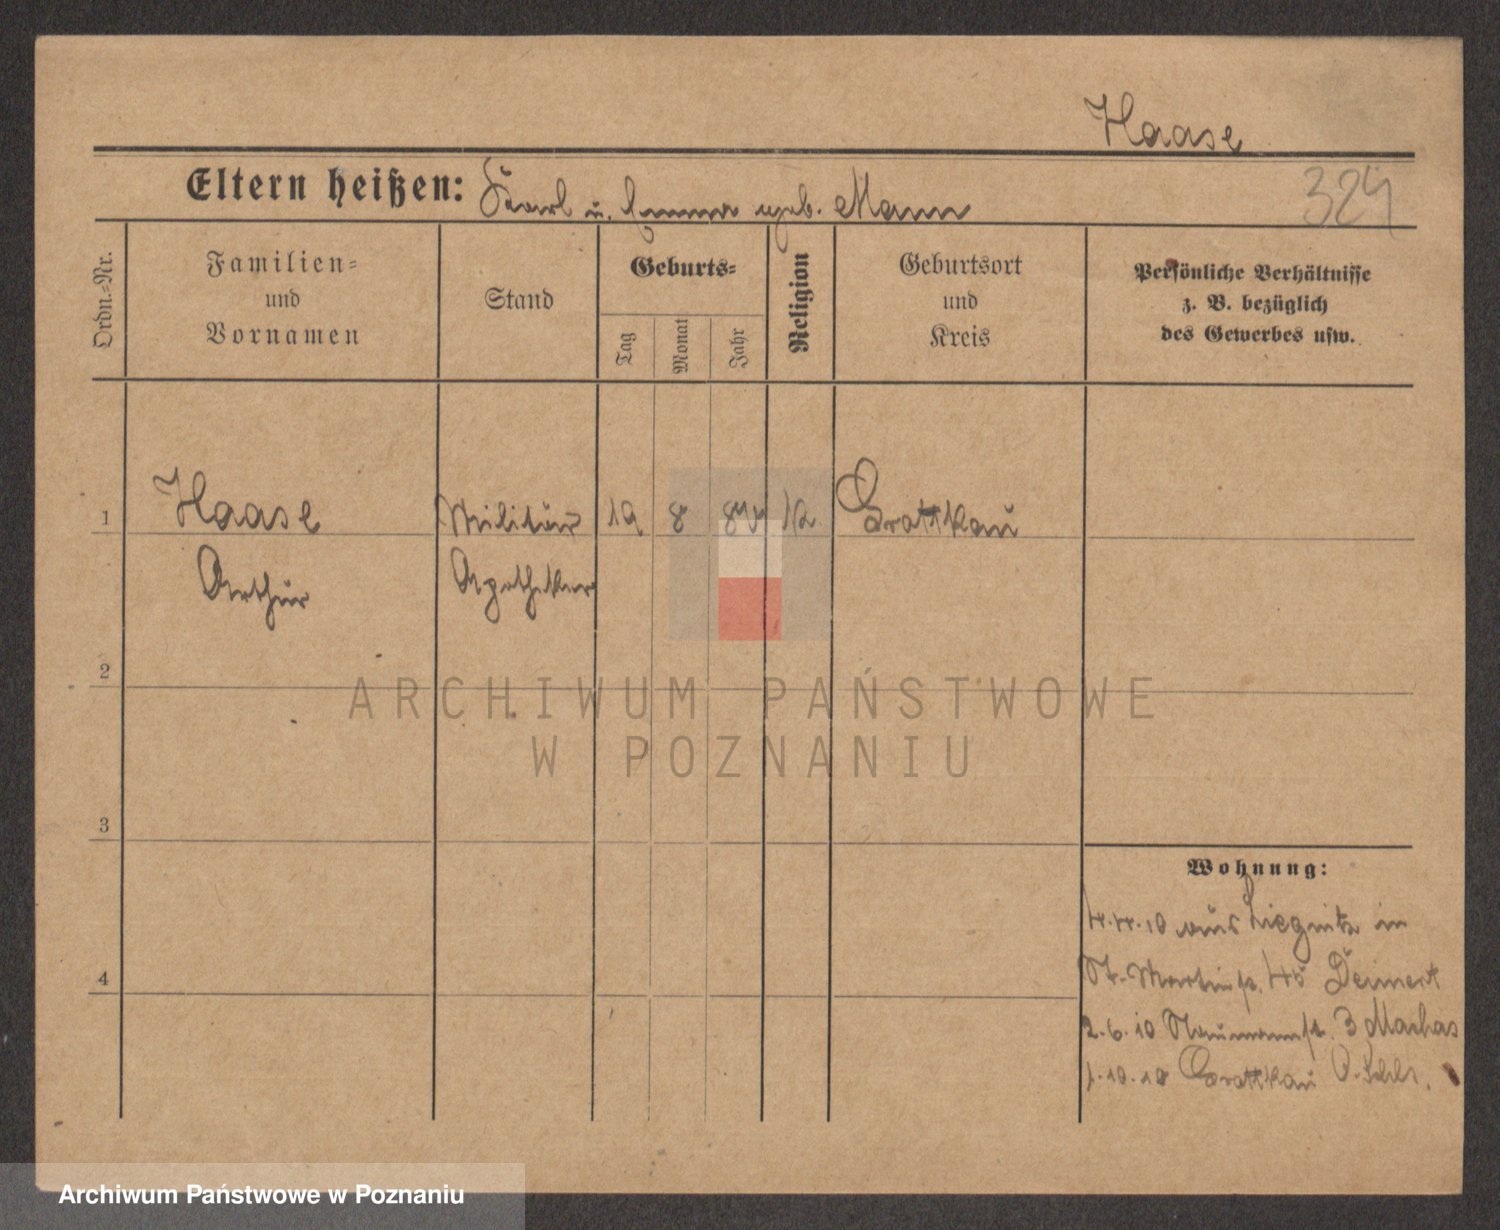 Haase
Eltern heißen: Karl u. Emma geb. Mann
324
Ordn.-Nr.
Familien-
und
Vornamen
Stand
Geburts-
Tag
Monat
Jahr
Religion
Geburtsort
und
Kreis
Persönliche Verhältnisse
z. B. bezüglich
des Gewerbes usw.
1 Haase Militär 19 8 84 k Grottkau
Arthur Apotheker
2
ARCHIWUM PAŃSTWOWE
W POZNANIU
3
Wohnung:
4.4.10 aus Liegnitz in
4
St. Martinstr. 45 Deinert
2.6.10 Naumannstr. 3 Machas
1.10.10 Grottkau O. Schls.
Archiwum Państwowe w Poznaniu